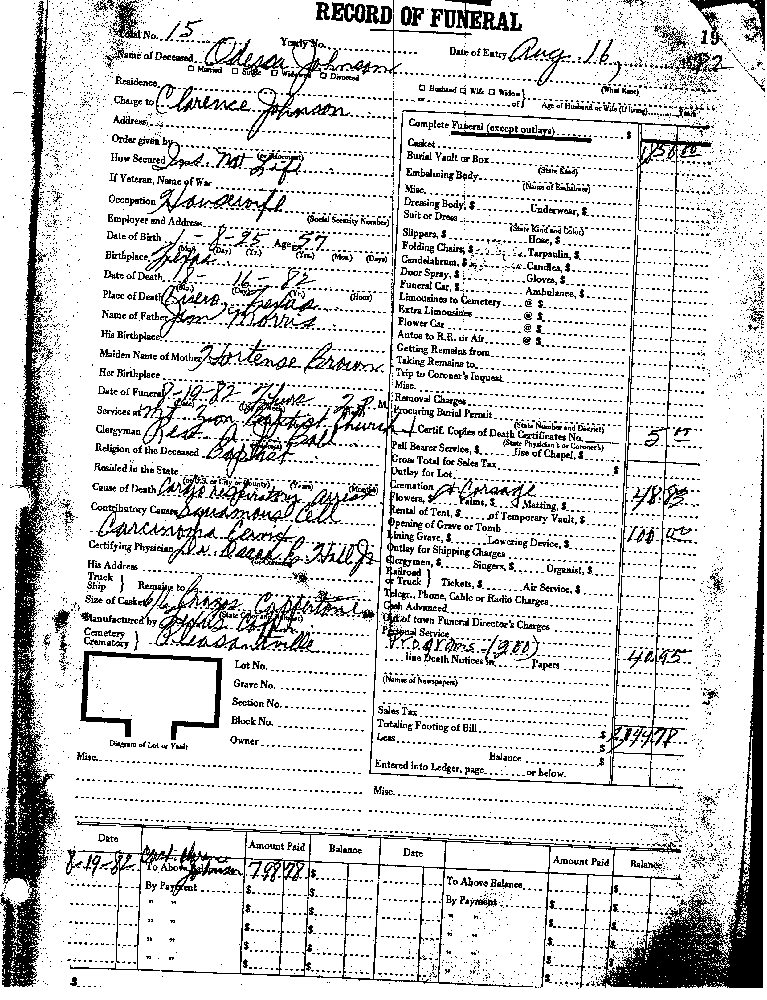 RECORD OF FUNERAL
Total No. 15 Yearly No. Date of Entry Aug. 16, 19 82
Name of Deceased Odessa Johnson
□ Married □ Single □ Widowed □ Divorced
Residence □ Husband □ Wife □ Widow (What Race)
or of Age of Husband or Wife (if living) Years
Charge to Clarence Johnson
Address
Order given by
How Secured Ins. Not Life
If Veteran, Name of War
Occupation Housewife
Employer and Address (Social Security Number)
Date of Birth 8-25 Age 57
(Mo.) (Day) (Yr.) (Yrs.) (Mos.) (Days)
Birthplace Texas
Date of Death 8-16-82
Place of Death Cuero, Texas (Hour)
Name of Father Jim Morris
His Birthplace
Maiden Name of Mother Hortense Brown
Her Birthplace
Date of Funeral 8-19-82 Thurs. 2 P. M.
Services at Mt. Zion Baptist Church
Clergyman Rev. Ball
Religion of the Deceased Baptist
Resided in the State
(or U.S. or City or County) (Years) (Months)
Cause of Death Cardio respiratory arrest
Contributory Causes Squamous Cell
Carcinoma Cervix
Certifying Physician Dr. Hall Jr
His Address
Truck
Ship } Remains to
Size of Casket Coppertone
(State Color and Number)
Manufactured by
Cemetery
Crematory } Pleasantville
Lot No.
Grave No.
Section No.
Block No.
Owner
Diagram of Lot or Vault
Complete Funeral (except outlays) $ 1850.00
Casket
Burial Vault or Box
(State Kind)
Embalming Body
(Name of Embalmer)
Misc.
Dressing Body, $ Underwear, $
Suit or Dress
(State Kind and Color)
Slippers, $ Hose, $
Folding Chairs, $ Tarpaulin, $
Candelabrum, $ Candles, $
Door Spray, $ Gloves, $
Funeral Car, $ Ambulance, $
Limousines to Cemetery @ $
Extra Limousines @ $
Flower Car @ $
Autos to R.R. or Air @ $
Getting Remains from
Taking Remains to
Trip to Coroner's Inquest
Misc.
Removal Charges
Procuring Burial Permit
(State Number and District)
Certif. Copies of Death Certificates No. 5
(State Physician's or Coroner's)
Pall Bearer Service, $ Use of Chapel, $
Gross Total for Sales Tax $
Outlay for Lot
Cremation & Corsage
Flowers, $ Palms, $ Matting, $ 48.83
Rental of Tent, $ of Temporary Vault, $
Opening of Grave or Tomb 100.00
Lining Grave, $ Lowering Device, $
Outlay for Shipping Charges
Clergymen, $ Singers, $ Organist, $
Railroad
or Truck } Tickets, $ Air Service, $
Telegr., Phone, Cable or Radio Charges
Cash Advanced
Out of town Funeral Director's Charges
Personal Service
Programs (200)
line Death Notices in Papers 40.95
(Names of Newspapers)
Sales Tax
Totaling Footing of Bill $ 2044.78
Less $
Balance $
Entered into Ledger, page or below.
Misc.
Misc.
Date Amount Paid Balance Date Amount Paid Balance
8-19-82 Clarence Johnson
To Above 798.78 $ To Above Balance $
By Payment $ By Payment $
" " $ " " $
" " $ " " $
" " $ " " $
" " $ " " $
$